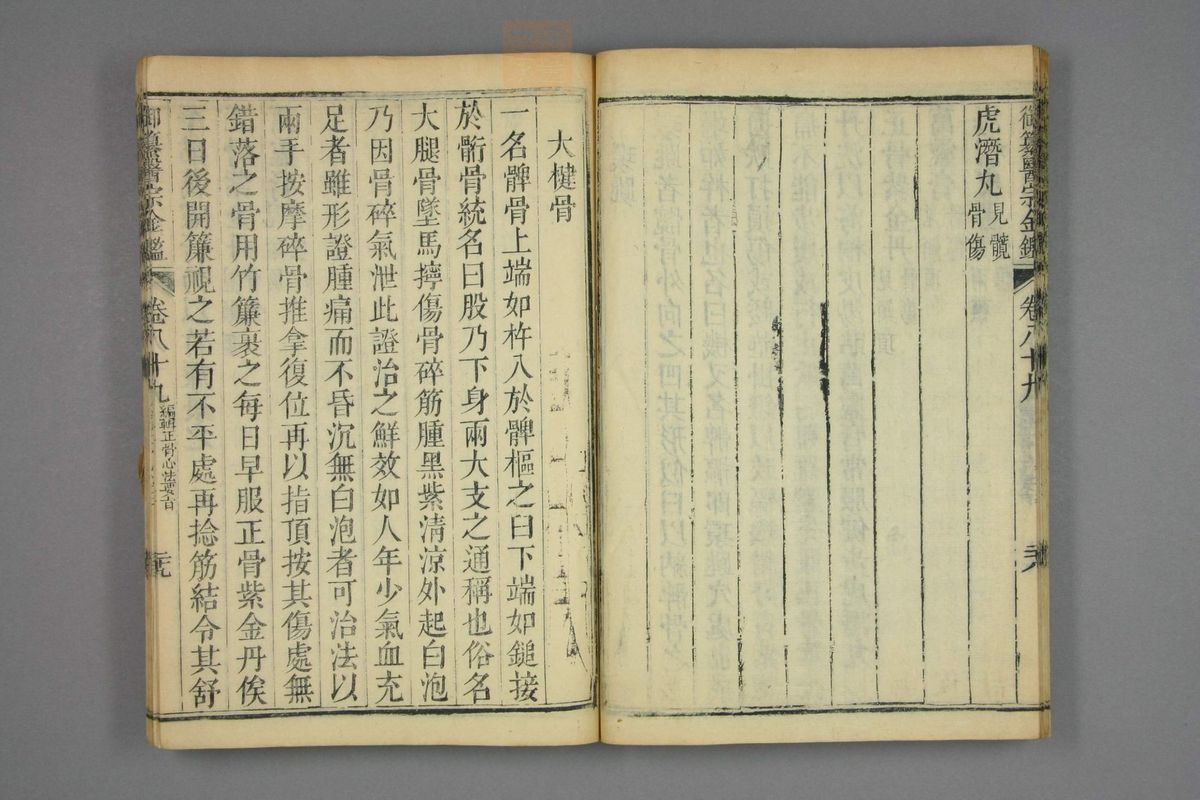 御纂醫宗金鑑 卷八十九
虎潛丸 見髖骨傷
大楗骨
一名髀骨上端如杵入於髀樞之臼下端如鎚接
於䯒骨統名曰股乃下身兩大支之通稱也俗名
大腿骨墜馬擰傷骨碎筋腫黑紫清涼外起白泡
乃因骨碎氣泄此證治之鮮效如人年少氣血充
足者雖形證腫痛而不昏沉無白泡者可治法以
兩手按摩碎骨推拿復位再以指頂按其傷處無
錯落之骨用竹簾裹之每日早服正骨紫金丹俟
三日後開簾視之若有不平處再捻筋結令其舒
御纂醫宗金鑑 卷八十九 編輯正骨心法要旨